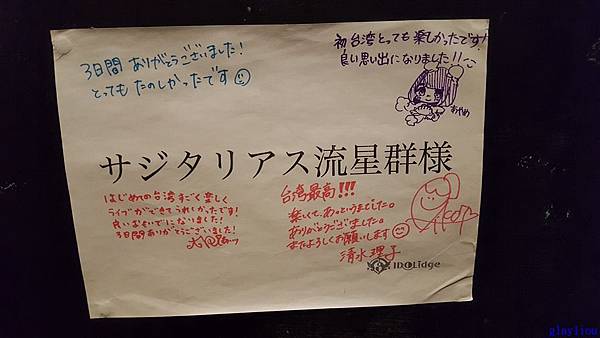 3日間 ありがとうございました!
とっても たのしかったです
初 台湾とっても 楽しかったです!
良い思い出になりました!!
あやめ
サジタリアス流星群様
はじめての台湾すごく楽しく
ライブができてうれしかったです!
良いおもいでになりました!
3日間ありがとうございました!
台湾最高!!!
楽しくて、あっというまでした。
ありがとうございました。
またよろしくお願いします
清水理子
IDOLidge
glayliou